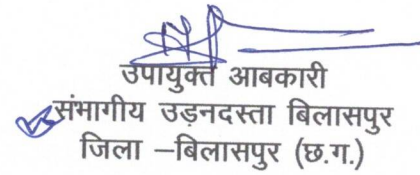 उपायुक्त आबकारी
संभागीय उड़नदस्ता बिलासपुर
जिला –बिलासपुर (छ.ग.)